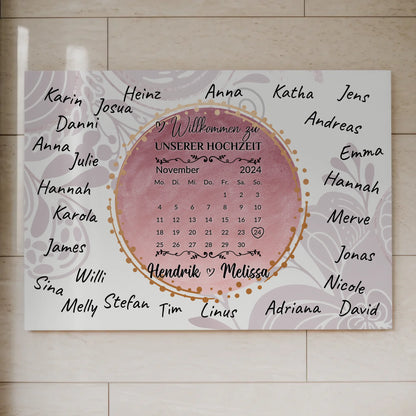 Karin
Josua
Heinz
Anna
Katha
Jens
Danni
Andreas
Anna
Julie
Emma
Hannah
Hannah
Karola
Merve
James
Jonas
Sina
Willi
Nicole
Melly
Stefan
Tim
Linus
Adriana
David
Willkommen zu
UNSERER HOCHZEIT
November 2024
Mo. Di. Mi. Do. Fr. Sa. So.
1 2 3
4 5 6 7 8 9 10
11 12 13 14 15 16 17
18 19 20 21 22 23 24
25 26 27 28 29 30
Hendrik ♡ Melissa